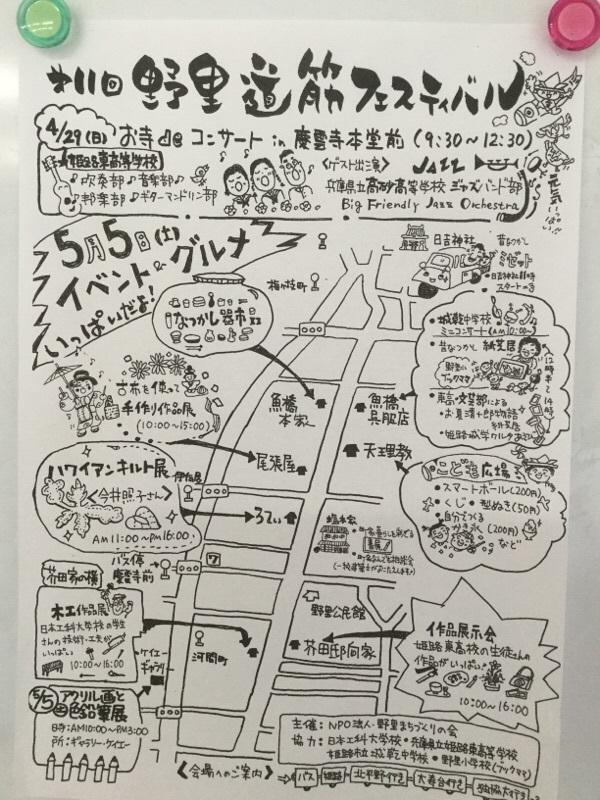 第11回 野里 道筋フェスティバル
4/29(日) お寺de コンサート in 慶雲寺本堂前 (9:30〜12:30)
姫路東高等学校
♪吹奏部♪音楽部♪
♪邦楽部♪ギターマンドリン部
〈ゲスト出演〉 JAZZ
兵庫県立高砂高等学校 ジャズバンド部
Big Friendly Jazz Orchestra
元気いっぱい!!
5月5日(土)
イベント&グルメ
いっぱいだよ!
なつかし器市
梅ヶ枝町
日吉神社
昔なつかし
ミゼット
・日吉神社11時
スタート
・城乾中学校
ミニコンサート(AM10:00〜)
・昔なつかし 紙芝居
野里小
ブックママ
12時半と14時
・東高・文芸部による
・お夏清十郎物語
紙芝居
・姫路城学
古布を使って
手作り作品展
(10:00〜15:00)
魚橋
本家
魚橋
呉服店
尾張屋
天理教
こども広場
・スマートボール(200円)
・くじ・型ぬき(50円)
・自分でつくる
かき氷(200円)
など
ハワイアンキルト展
〈今井照子さん〉
AM11:00〜PM16:00
伊伝居
ろてい
バス停
慶雲寺前
7
芥田家の横
木工作品展
日本工科大学校の学生
さんの技術・工夫が
いっぱい
10:00〜16:00
ケイエー
ギャラリー
河間町
野里公民館
芥田邸向家
作品展示会
姫路東高校の生徒さんの
作品がいっぱい!
10:00〜16:00
5/5(土) アクリル画と
色鉛筆展
日時:AM10:00〜PM3:00
所:ギャラリー・ケイエー
主催:NPO法人・野里まちづくりの会
協力:日本工科大学校・兵庫県立姫路東高等学校
姫路市立城乾中学校・野里小学校(ブックママ)
〈会場へのご案内〉
バス 姫路 北平野行き 大寿台行き 獨協大行き